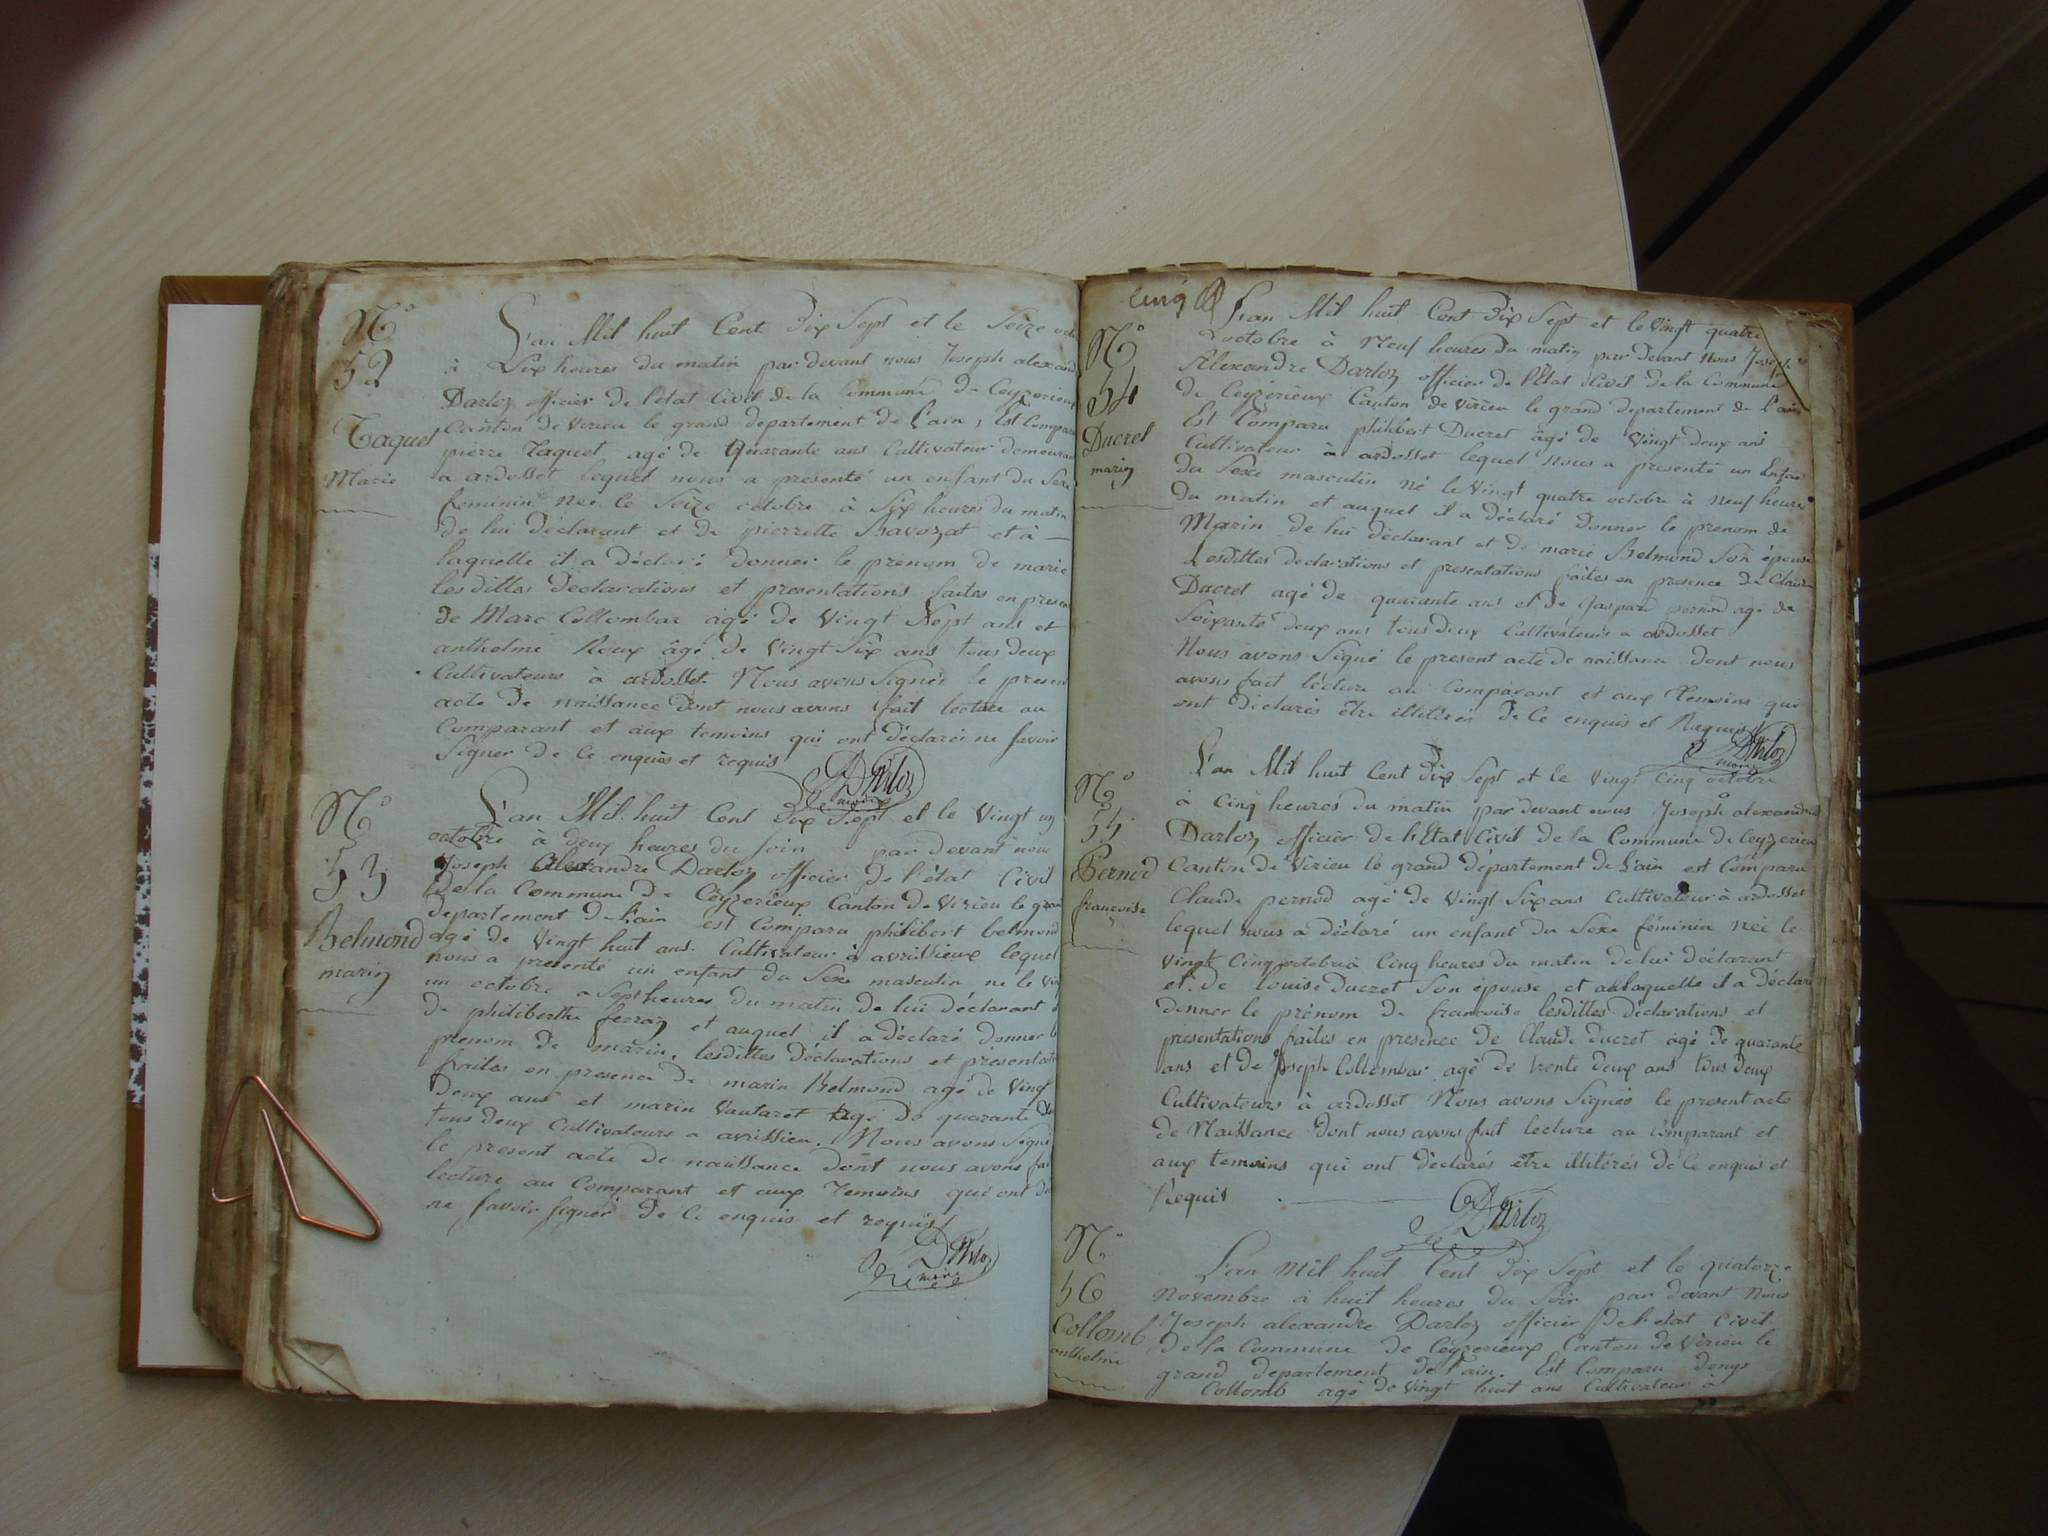 N°
52
Taquet
Marie
L'an Mil huit Cent Dix Sept et le Seize octo
à Six heures du matin par devant nous Joseph alexand
Darloz officier de l'état Civil de la Commune de Ceyzerieux
Canton de Virieu le grand departement de L'ain, Est Compar
pierre Taquet agé de Quarante ans Cultivateur demeuran
a ardosset lequel nous a presenté un enfant du Sexe
feminin neé le Seize octobre à Six heures du matin
de lui déclarant et de pierrette Bavozat et à
laquelle il a déclaré donner le prenom de marie
lesdittes declarations et presentations faites en presen
de Marc Collombar agé de Vingt Sept ans et
anthelme Roux âgé de Vingt Six ans tous deux
Cultivateurs à ardosset. Nous avons Signés le presen
acte de naissance dont nous avons fait lecture au
Comparant et aux temoins qui ont déclaréi ne savoir
Signer de ce enquis et requis Darloz
maire
N°
53
Belmond
marin
L'an Mil huit Cent Dix Sept et le Vingt un
octobre à deux heures du soir par devant nous
Joseph Alexandre Darloz officier de l'état Civil
de la Commune de Ceyzerieux Canton de Virieu le gran
departement de L'ain est Comparu philibert belmond
agé de Vingt huit ans Cultivateur à avrissieux lequel
nous a presenté un enfant du Sexe masculin né le vin
un octobre a Sept heures du matin de lui déclarant
de philiberthe ferraz et auquel il a déclaré donner l
prenom de marin, lesdittes déclarations et presentat
faites en presence de marin Belmond agé de Vingt
deux ans et marin Vautaret agé de quarante
tous deux Cultivateurs a avrissieu. Nous avons Signé
le present acte de naissance dont nous avons fai
lecture au Comparant et aux Temoins qui ont dé
ne savoir signer de ce enquis et requis
Darloz
maire
cinq
N°
54
Ducret
marin
L'an Mil huit Cent Dix Sept et le Vingt quatre
octobre à Neuf heures du matin par devant nous Joseph
Alexandre Darloz officier de l'Etat Civil de la Commune
de Ceyzérieux Canton de Virieu le grand departement de L'ain
Est Comparu philibert Ducret âgé de Vingt deux ans
Cultivateur à ardosset lequel Nous a presenté un Enfan
du Sexe masculin né le Vingt quatre octobre à Neuf heures
du matin et auquel il a déclaré donner le prenom de
Marin de lui déclarant et de marie Belmond Son épouse
Lesdittes declarations et presentations faites en presence de Claude
Ducret agé de quarante ans et de Gaspard pernod agé de
Soixante deux ans tous deux Cultivateurs a ardosset
Nous avons Signé le present acte de naissance dont nous
avons fait lecture au Comparant et aux Temoins qui
ont déclarés être illitérés de Ce enquis et Requis
Darloz
maire
N°
55
Pernod
francoise
L'an Mil huit Cent Dix Sept et le Vingt cinq octobre
à Cinq heures du matin par devant nous Joseph alexandre
Darloz officier de l'Etat Civil de la Commune de Ceyzerieu
Canton de Virieu le grand département de L'ain est Comparu
Claude pernod agé de Vingt Six ans Cultivateur à ardosset
lequel nous a déclaré un enfant du Sexe féminin neé le
vingt Cinq octobre à Cinq heures du matin de lui déclarant
et de louise Ducret Son épouse et a laquelle il a déclaré
donner le prénom de francoise lesdittes déclarations et
presentations faites en presence de Claude ducret agé de quarante
ans et de Joseph Collombar agé de trente deux ans tous deux
Cultivateurs à ardosset Nous avons Signés le present acte
de Naissance dont nous avons fait lecture au Comparant et
aux temoins qui ont déclarés être illitérés de Ce enquis et
Requis
Darloz
N°
56
Collomb
anthelme
L'an mil huit Cent Dix Sept et le quatorze
Novembre à huit heures du Soir par devant Nous
Joseph alexandre Darloz officier de l'état Civil
de la Commune de Ceyzerieux Canton de Virieu le
grand departement de l'ain. Est Comparu denys
Collomb agé de Vingt huit ans Cultivateur à